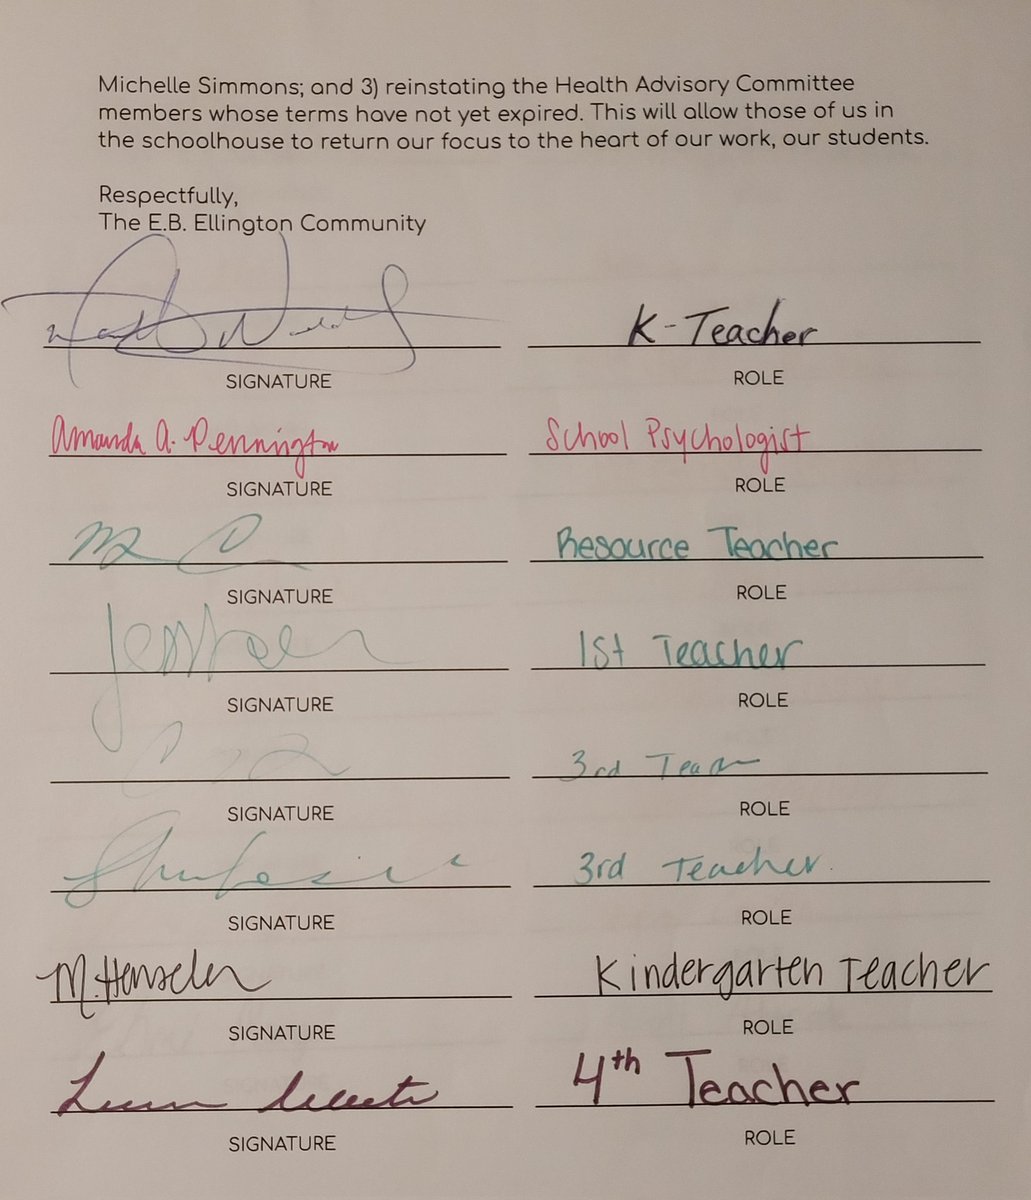 Michelle Simmons; and 3) reinstating the Health Advisory Committee
members whose terms have not yet expired. This will allow those of us in
the schoolhouse to return our focus to the heart of our work, our students.
Respectfully,
The E.B. Ellington Community
K-Teacher
SIGNATURE ROLE
Amanda A. Pennington School Psychologist
SIGNATURE ROLE
Resource Teacher
SIGNATURE ROLE
1st Teacher
SIGNATURE ROLE
3rd
SIGNATURE ROLE
3rd Teacher.
SIGNATURE ROLE
M. Henselen Kindergarten Teacher
SIGNATURE ROLE
4th Teacher
SIGNATURE ROLE